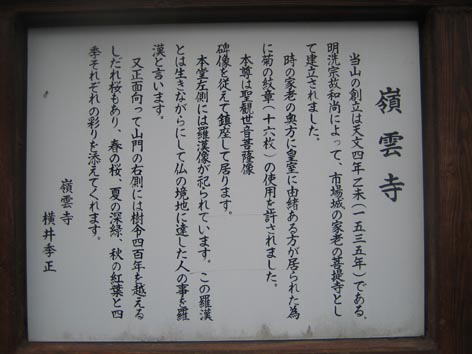 嶺雲寺
当山の創立は天文四年乙未(一五三五年)である。
明洗宗故和尚によって、市場城の家老の菩提寺とし
て建立されました。
時の家老の奥方に皇室に由緒ある方が居られた為
に菊の紋章(十六枚)の使用を許されました。
本尊は聖観世音菩薩像
碑像を従えて鎮座して居ります。
本堂左側には羅漢像が祀られています。この羅漢
とは生きながらにして仏の境地に達した人の事を羅
漢と言います。
又正面向って山門の右側には樹令四百年を越える
しだれ桜もあり、春の桜、夏の深緑、秋の紅葉と四
季それぞれの彩りを添えてくれます。
嶺雲寺
横井季正